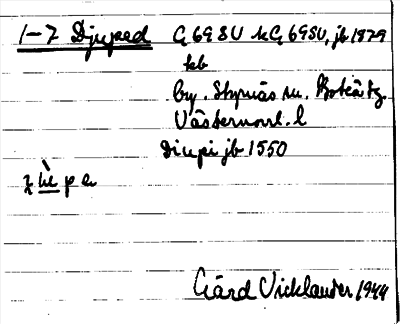 1-7 Djuped G 69 SV kG 69 SV, jb 1929
kb
by. Styrnäs sn. Boteå tg.
Västernorrl. l
Diupi jb 1550
Gärd Vicklander 1944